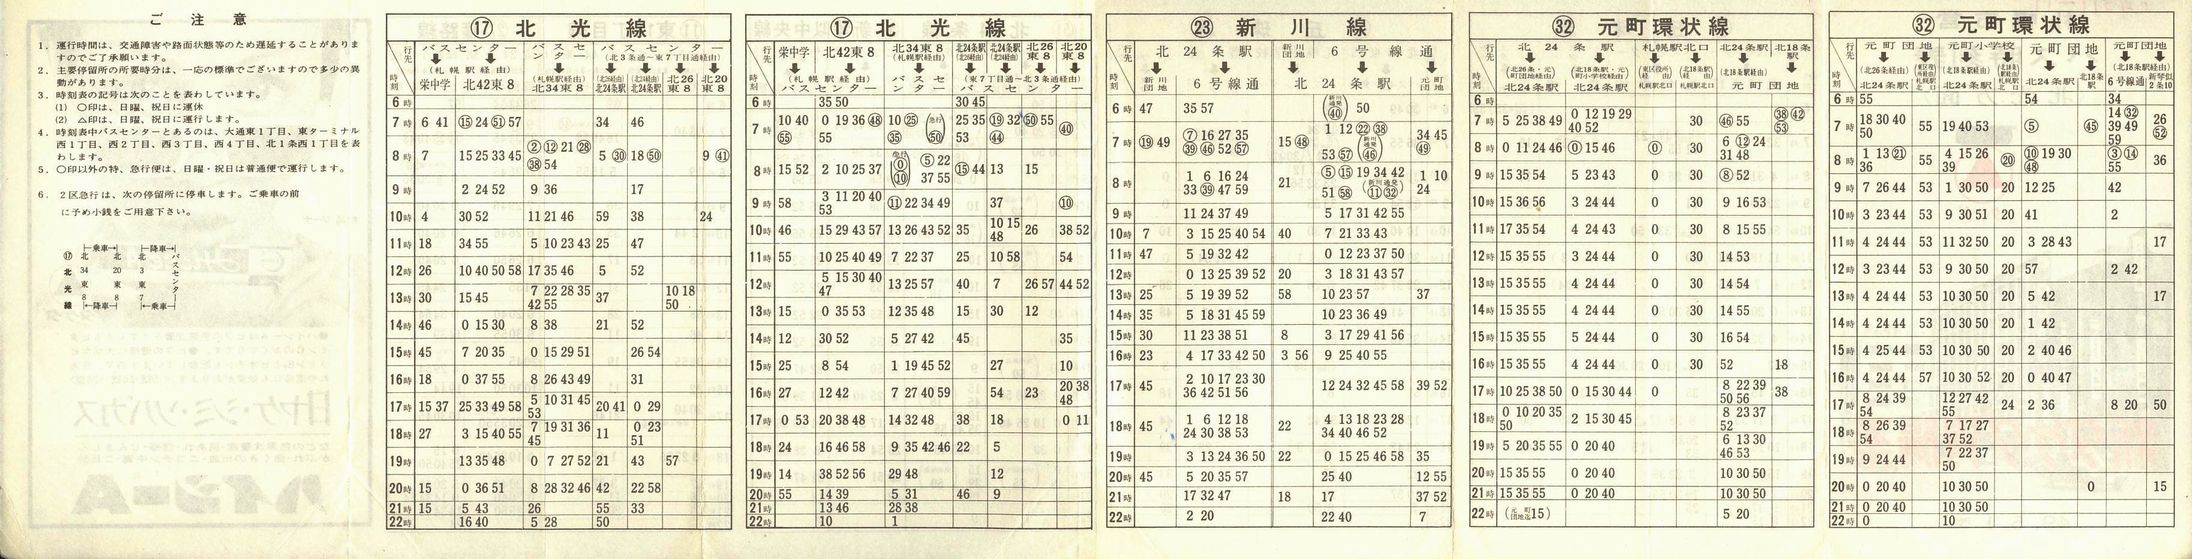 ご注意
1. 運行時間は、交通障害や路面状態等のため遅延することがありま
すのでご了承願います。
2. 主要停留所の所要時分は、一応の標準でございますので多少の異
動があります。
3. 時刻表の記号は次のことを表わしています。
(1) 〇印は、日曜、祝日に運休
(2) △印は、日曜、祝日に運行します。
4. 時刻表中バスセンターとあるのは、大通東1丁目、東ターミナル
西1丁目、西2丁目、西3丁目、西4丁目、北1条西1丁目を表
わします。
5. 〇印以外の特、急行便は、日曜・祝日は普通便で運行します。
6. 2区急行は、次の停留所に停車します。ご乗車の前
に予め小銭をご用意下さい。
⑰北光線
乗車 降車
北34東8 北20東8 北3東7 バスセンター
降車 乗車
⑰ 北光線
行先 時刻
バスセンター
(札幌駅経由)
栄中学 北42東8
バスセンター
(札幌駅経由)
北34東8
バスセンター
(北3条通～東7丁目経由)
北26東8 北20東8
6時
7時 6 41 ⑮ 24 51 57 34 46
8時 7 15 25 33 45 ② ⑫ 21 28 38 54 5 30 18 50 9 41
9時 2 24 52 9 36 17
10時 4 30 52 11 21 46 59 38 24
11時 18 34 55 5 10 23 43 25 47
12時 26 10 40 50 58 17 35 46 5 52
13時 30 15 45 7 22 28 35 42 55 37 10 18 50
14時 46 0 15 30 8 38 21 52
15時 45 7 20 35 0 15 29 51 26 54
16時 18 0 37 55 8 26 43 49 31
17時 15 37 25 33 49 58 5 10 31 45 53 20 41 0 29
18時 27 3 15 40 55 7 19 31 36 45 11 0 23 51
19時 13 35 48 0 7 27 52 21 43 57
20時 15 0 36 51 8 28 32 46 42 22 58
21時 15 5 43 26 55 33
22時 16 40 5 28 50
⑰ 北光線
行先 時刻
栄中学 北42東8
(札幌駅経由)
バスセンター
北34東8
(札幌駅経由)
バスセンター
北24条駅 北24条駅 北26東8 北20東8
(東7丁目通～北3条通経由)
バスセンター
6時 35 50 30 45
7時 10 40 55 0 19 36 48 10 25 35 急行 50 25 35 53 19 32 44 50 55 40
8時 15 52 2 10 25 37 急行 0 10 5 22 37 55 15 44 13 15
9時 58 3 11 20 40 53 ⑪ 22 34 49 37 ⑩
10時 46 15 29 43 57 13 26 43 52 35 10 15 48 26 38 52
11時 55 10 25 40 49 7 22 37 25 10 58 54
12時 5 15 30 40 47 13 25 57 40 7 26 57 44 52
13時 15 0 35 53 12 35 48 15 30 12
14時 12 30 52 5 27 42 45 35
15時 25 8 54 1 19 45 52 27 10
16時 27 12 42 7 27 40 59 54 23 20 38 48
17時 0 53 20 38 48 14 32 48 38 18 0 11
18時 24 16 46 58 9 35 42 46 22 5
19時 14 38 52 56 29 48 12
20時 55 14 39 5 31 46 9
21時 13 46 28 38
22時 10 1
㉓ 新川線
行先 時刻
北24条駅 新川団地 6号線通
新川団地 6号線通 北24条駅 元町団地
6時 47 35 57 新川通発 40 50
7時 ⑲ 49 ⑦ 16 27 35 39 46 52 57 15 48 1 12 22 38 53 57 新川通発 46 34 45 49
8時 1 6 16 24 33 39 47 59 21 ⑤ ⑮ 19 34 42 51 58 新川通発 ⑪ 32 1 10 24
9時 11 24 37 49 5 17 31 42 55
10時 7 3 15 25 40 54 40 7 21 33 43
11時 47 5 19 32 42 0 12 23 37 50
12時 0 13 25 39 52 20 3 18 31 43 57
13時 25 5 19 39 52 58 10 23 57 37
14時 35 5 18 31 45 59 10 23 36 49
15時 30 11 23 38 51 8 3 17 29 41 56
16時 23 4 17 33 42 50 3 56 9 25 40 55
17時 45 2 10 17 23 30 36 42 51 56 12 24 32 45 58 39 52
18時 45 1 6 12 18 24 30 38 53 22 4 13 18 23 28 34 40 46 52
19時 3 13 24 36 50 22 0 15 25 46 58 35
20時 45 5 20 35 57 25 40 12 55
21時 17 32 47 18 17 37 52
22時 2 20 22 40 7
㉜ 元町環状線
行先 時刻
北24条駅 札幌駅北口 北24条駅 北18条駅
(北26条・元町団地経由) (北18条駅・元町小学校経由) (東区役所経由) (北18条駅経由) (北18条駅経由)
北24条駅 北24条駅 札幌駅北口 札幌駅北口 元町団地
6時
7時 5 25 38 49 0 12 19 29 40 52 30 46 55 38 42 53
8時 0 11 24 46 ⓪ 15 46 ⓪ 30 6 ⑫ 24 31 48
9時 15 35 54 5 23 43 0 30 ⑧ 52
10時 15 36 56 3 24 44 0 30 9 16 53
11時 17 35 54 4 24 43 0 30 8 15 55
12時 15 35 54 4 24 44 0 30 14 53
13時 15 35 55 4 24 44 0 30 14 54
14時 15 35 55 4 24 44 0 30 14 55
15時 15 35 55 5 24 44 0 30 16 54
16時 15 35 55 4 24 44 0 30 52 18
17時 10 25 38 50 0 15 30 44 0 8 22 39 50 56 38
18時 0 10 20 35 50 2 15 30 45 8 23 37 52
19時 5 20 35 55 0 20 40 6 13 30 46 53
20時 15 35 55 0 20 40 10 30 50
21時 15 35 55 0 20 40 10 30 50
22時 (元町団地迄15) 5 20
㉜ 元町環状線
行先 時刻
元町団地 元町小学校 元町団地 元町団地
(北26条経由) (北18条駅経由) (北18条駅経由)
北24条駅 札幌駅北口 北24条駅 札幌駅北口 北24条駅 北18条駅 6号線通 新琴似2条10
6時 55 54 34
7時 18 30 40 50 55 19 40 53 ⑤ 45 14 32 39 49 59 26 52
8時 1 13 21 36 55 4 15 26 39 20 ⑩ 19 30 48 ③ ⑭ 55 36
9時 7 26 44 53 1 30 50 20 12 25 42
10時 3 23 44 53 9 30 51 20 41 2
11時 4 24 44 53 11 32 50 20 3 28 43 17
12時 3 23 44 53 9 30 50 20 57 2 42
13時 4 24 44 53 10 30 50 20 5 42 17
14時 4 24 44 53 10 30 50 20 1 42
15時 4 25 44 53 10 30 50 20 2 40 46
16時 4 24 44 57 10 30 52 20 0 40 47
17時 8 24 39 54 12 27 42 55 24 2 36 8 20 50
18時 8 26 39 54 7 17 27 37 52
19時 9 24 44 7 22 37 50
20時 0 20 40 10 30 50 0 15
21時 0 20 40 10 30 50
22時 0 10